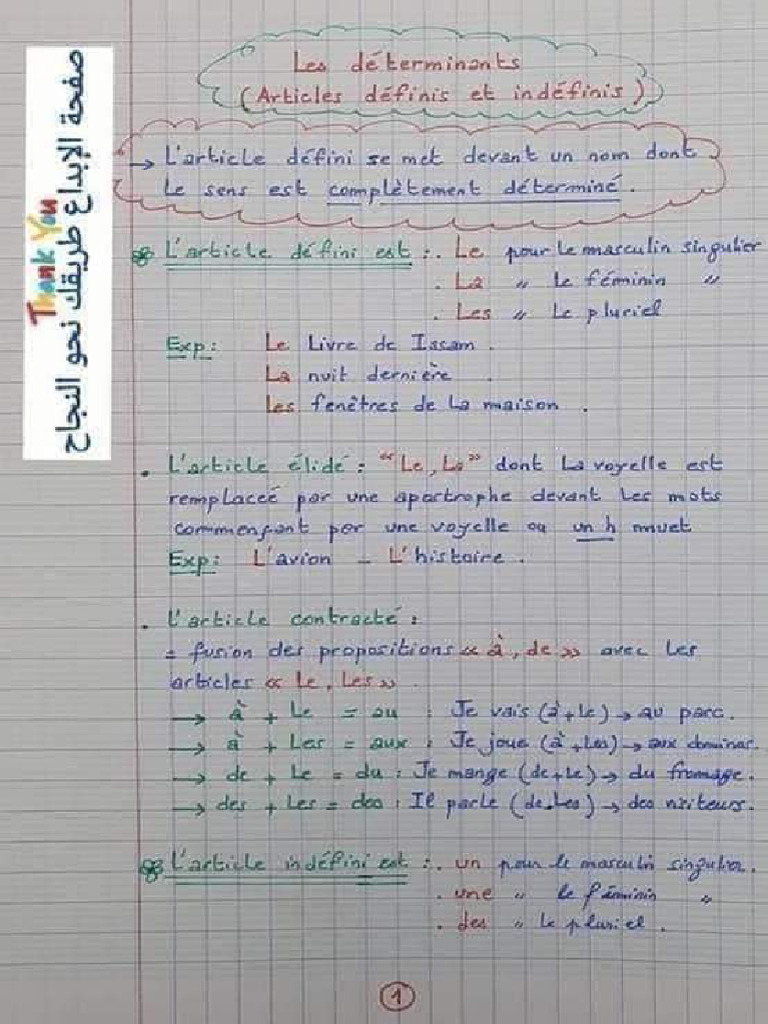 Les déterminants
(Articles définis et indéfinis)
→ L'article défini se met devant un nom dont
le sens est complètement déterminé.
L'article défini est : . Le pour le masculin singulier
. La " le féminin "
. Les " le pluriel
Exp: Le Livre de Issam.
La nuit dernière.
Les fenêtres de la maison.
. L'article élidé : "Le, La" dont la voyelle est
remplaceé par une apostrophe devant les mots
commençant par une voyelle ou un h muet
Exp: L'avion - L'histoire.
. L'article contracté :
= fusion des propositions « à, de » avec les
articles « Le, Les ».
→ à + Le = au : Je vais (à+le) → au parc.
→ à + Les = aux : Je joue (à+les) → aux dominos.
→ de + Le = du : Je mange (de+le) → du fromage.
→ des + Les = des : Il parle (de+les) → des
L'article indéfini est : . un pour le masculin singulier.
. une " le féminin "
. des " le pluriel.
1
Thank You
صفحة الإبداع طريقك نحو النجاح